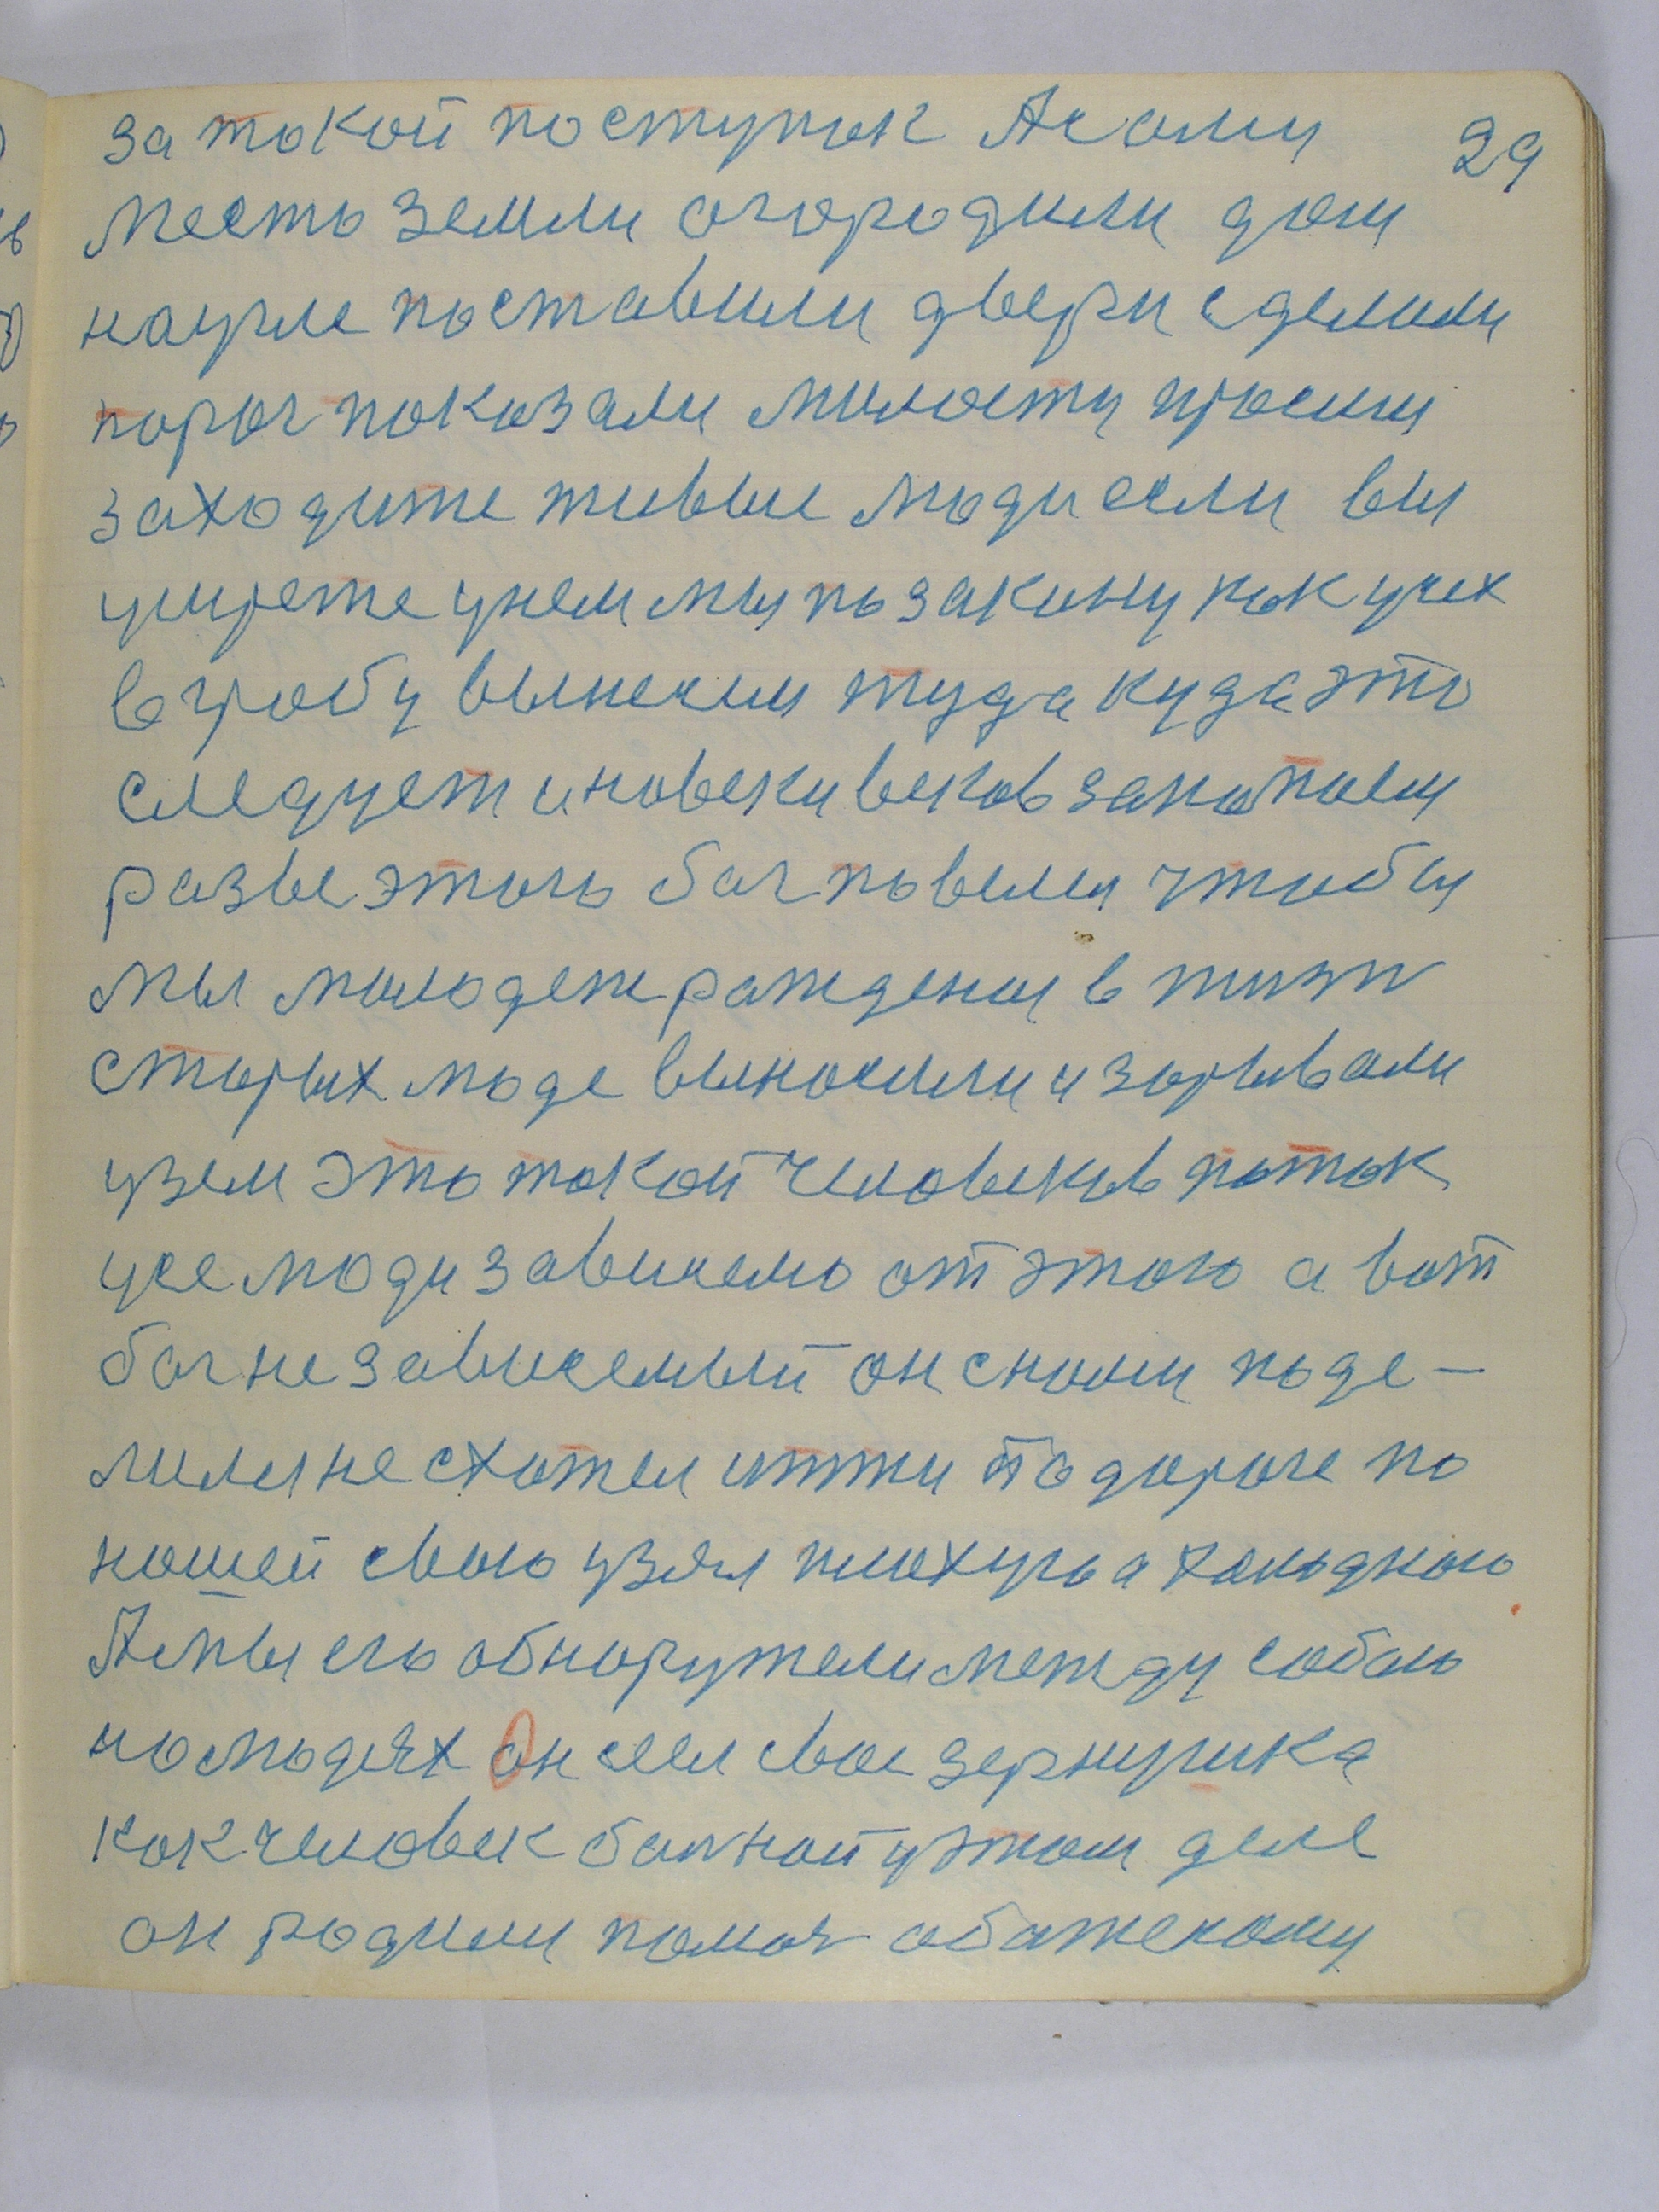 29
за токой поступок А сами
место земли огородили дом
научле поставили двери сделали
порог показали милости просим
заходите живые люди если вы
умрете унем мы по закону как усех
в гробу вынесем туда куда это
следует и новеки веков закопаем
разве этого бог повелел чтобы
мы молодеж рождения в жизн
старых люде выносили и зарывали
узем это такой человеков поток
усе люди зависемо от этого а вот
бог не зависемый он с нами поде-
лился не схотел итти по дороге по
нашей свою узял плохую а холодною
А мы его обнаружели между собою
на людях Он сеел свое зернушка
как человек болной у этом деле
он родилси помог обиженому